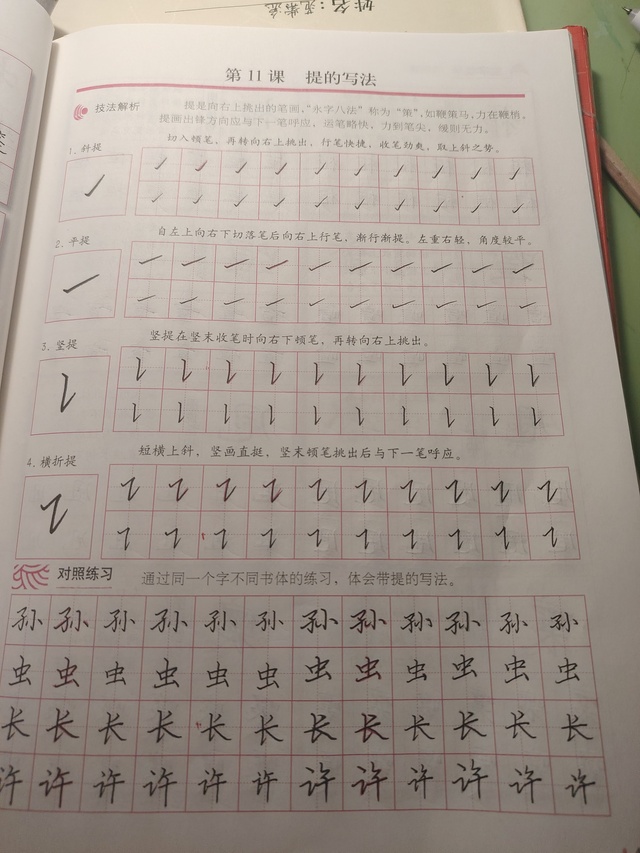 姓名：
第11课 提的写法
技法解析
提是向右上挑出的笔画，“永字八法”称为“策”，如鞭策马，力在鞭梢。
提画出锋方向应与下一笔呼应，运笔略快，力到笔尖，缓则无力。
1. 斜提
切入顿笔，再转向右上挑出，行笔快捷，收笔劲爽，取上斜之势。
2. 平提
自左上向右下切落笔后向右上行笔，渐行渐提。左重右轻，角度较平。
3. 竖提
竖提在竖末收笔时向右下顿笔，再转向右上挑出。
4. 横折提
短横上斜，竖画直挺，竖末顿笔挑出后与下一笔呼应。
对照练习
通过同一个字不同书体的练习，体会带提的写法。
孙 孙 孙 孙 孙 孙 孙 孙 孙 孙 孙 孙
虫 虫 虫 虫 虫 虫 虫 虫 虫 虫 虫 虫
长 长 长 长 长 长 长 长 长 长 长 长
许 许 许 许 许 许 许 许 许 许 许 许